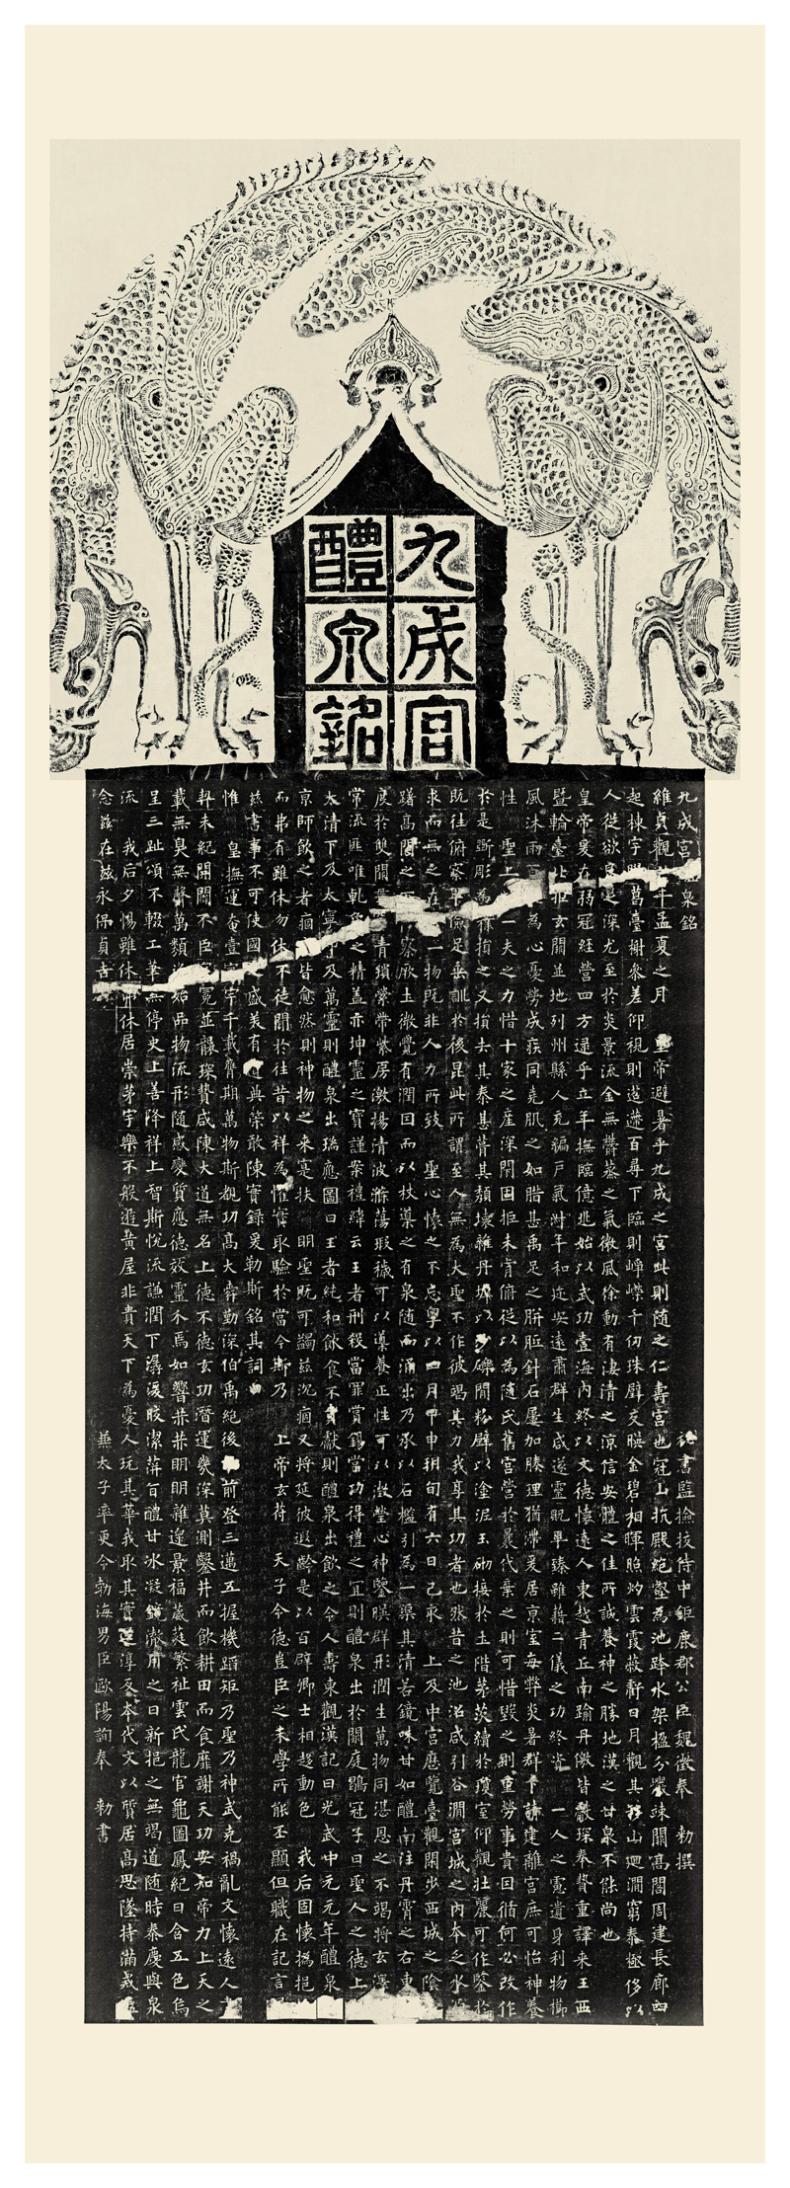 九成宮
醴泉銘
九成宮泉銘 祕書監撿挍侍中鉅鹿郡公臣魏徵奉 勑撰
維貞觀年孟夏之月 皇帝避暑乎九成之宮此則隨之仁壽宮也冠山抗殿絕壑為池跨水架楹分巖竦闕高閣周建長廊四
起棟宇膠葛臺榭參差仰視則迢遰百尋下臨則崢嶸千仞珠璧交暎金碧相暉照灼雲霞蔽虧日月觀其移山迴澗窮泰極侈以
人從欲良足深尤至於炎景流金無鬱蒸之氣微風徐動有淒清之涼信安體之佳所誠養神之勝地漢之甘泉不能尚也
皇帝爰在弱冠經營四方逮乎立年撫臨億兆始以武功壹海內終以文德懷遠人東越青丘南踰丹儌皆獻琛奉贄重譯來王西
暨輪臺北拒玄闕並地列州縣人充編戶氣淑年和邇安遠肅群生咸遂靈貺畢臻雖藉二儀之功終資 一人之慮遺身利物櫛
風沐雨為心憂勞成疾同堯肌之如腊甚禹足之胼胝針石屢加腠理猶滯爰居京室每弊炎暑群下請建離宮庶可怡神養
性 聖上一夫之力惜十家之產深閉固拒未肯俯從以為隨氏舊宮營於曩代棄之則可惜毀之則重勞事貴因循何必改作
於是斲彫為樸損之又損去其泰甚葺其頹壞雜丹墀以沙礫間粉壁以塗泥玉砌接於土階茅茨續於瓊室仰觀壯麗可作鑒於
既往俯察卑儉足垂訓於後昆此所謂至人無為大聖不作彼竭其力我享其功者也然昔之池沼咸引谷澗宮城之內本乏水
求而無之在一物既非人力所致 聖心懷之不忘粵以四月甲申朔旬有六日己亥 上及中宮歷覽臺觀閑步西城之陰
躇高閣之察厥土微覺有潤因而以杖導之有泉隨而涌出乃承以石檻引為一渠其清若鏡味甘如醴南注丹霄之右東
度於雙闕青瑣縈帶紫房激揚清波滌蕩瑕穢可以導養正性可以澂瑩心神鑒暎群形潤生萬物同湛恩之不竭將玄澤
常流匪唯乾之精蓋亦坤靈之寶謹案禮緯云王者刑殺當罪賞錫當功得禮之宜則醴泉出於闕庭鶡冠子曰聖人之德上
太清下及太寧及萬靈則醴泉出瑞應圖曰王者純和飲食不貢獻則醴泉出飲之令人壽東觀漢記曰光武中元元年醴泉
京師飲之者痼皆愈然則神物之來寔扶 明聖既可蠲茲沉痼又將延彼遐齡是以百辟卿士相趨動色 我后固懷撝挹
而弗有雖休勿休不徒聞於往昔以祥為懼實取驗於當今斯乃 上帝玄符 天子令德豈臣之末學所能丕顯但職在記言
茲書事不可使國之盛美有遺典策敢陳實錄爰勒斯銘其詞曰
惟 皇撫運奄壹寰宇千載膺期萬物斯覩功高大舜勤深伯禹絕後前登三邁五握機蹈矩乃聖乃神武克禍亂文懷遠人
契未紀開闢不臣冠冕並襲琛贄咸陳大道無名上德不德玄功潛運幾深莫測鑿井而飲耕田而食靡謝天功安知帝力上天之
載無臭無聲萬類資始品物流形隨感變質應德效靈介焉如響赫赫明明雜遝景福葳蕤繁祉雲氏龍官龜圖鳳紀日含五色烏
呈三趾頌不輟工筆無停史上善降祥上智斯悅流謙潤下潺湲皎潔蓱旨醴甘冰凝鏡澈用之日新挹之無竭道隨時泰慶與泉
流 我后夕惕雖休弗休居崇茅宇樂不般遊黃屋非貴天下為憂人玩其華我取其實還淳反本代文以質居高思墜持滿戒
念茲在茲永保貞吉 兼太子率更令勃海男臣歐陽詢奉 勑書